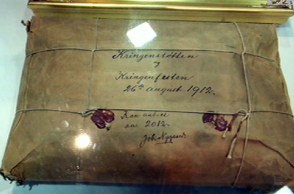 Kringensbøtten
og
Kringenfesten
26de august 1912.
Kan aabnes
i 2012.
Joh. Nygaard